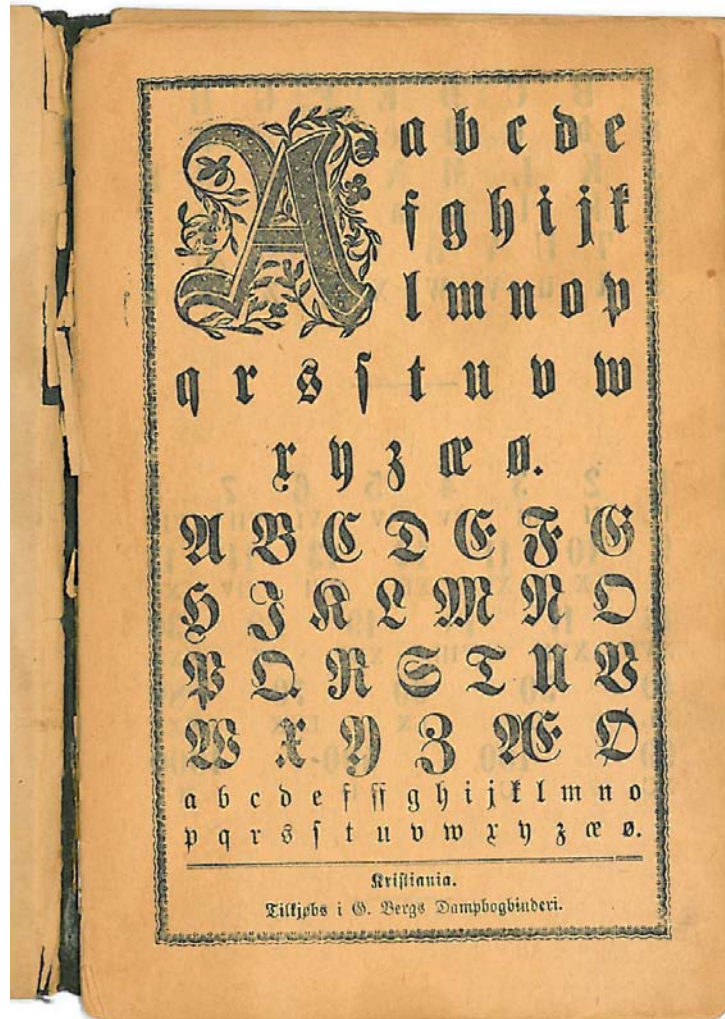 A a b c d e
f g h i j k
l m n o p
q r s ſ t u v w
x y z æ ø.
A B C D E F G
H I K L M N O
P Q R S T U V
W X Y Z Æ Ø
a b c d e f ff g h i j k l m n o
p q r s ſ t u v w x y z æ ø.
Kriſtiania.
Tilkjøbs i G. Bergs Dampbogbinderi.